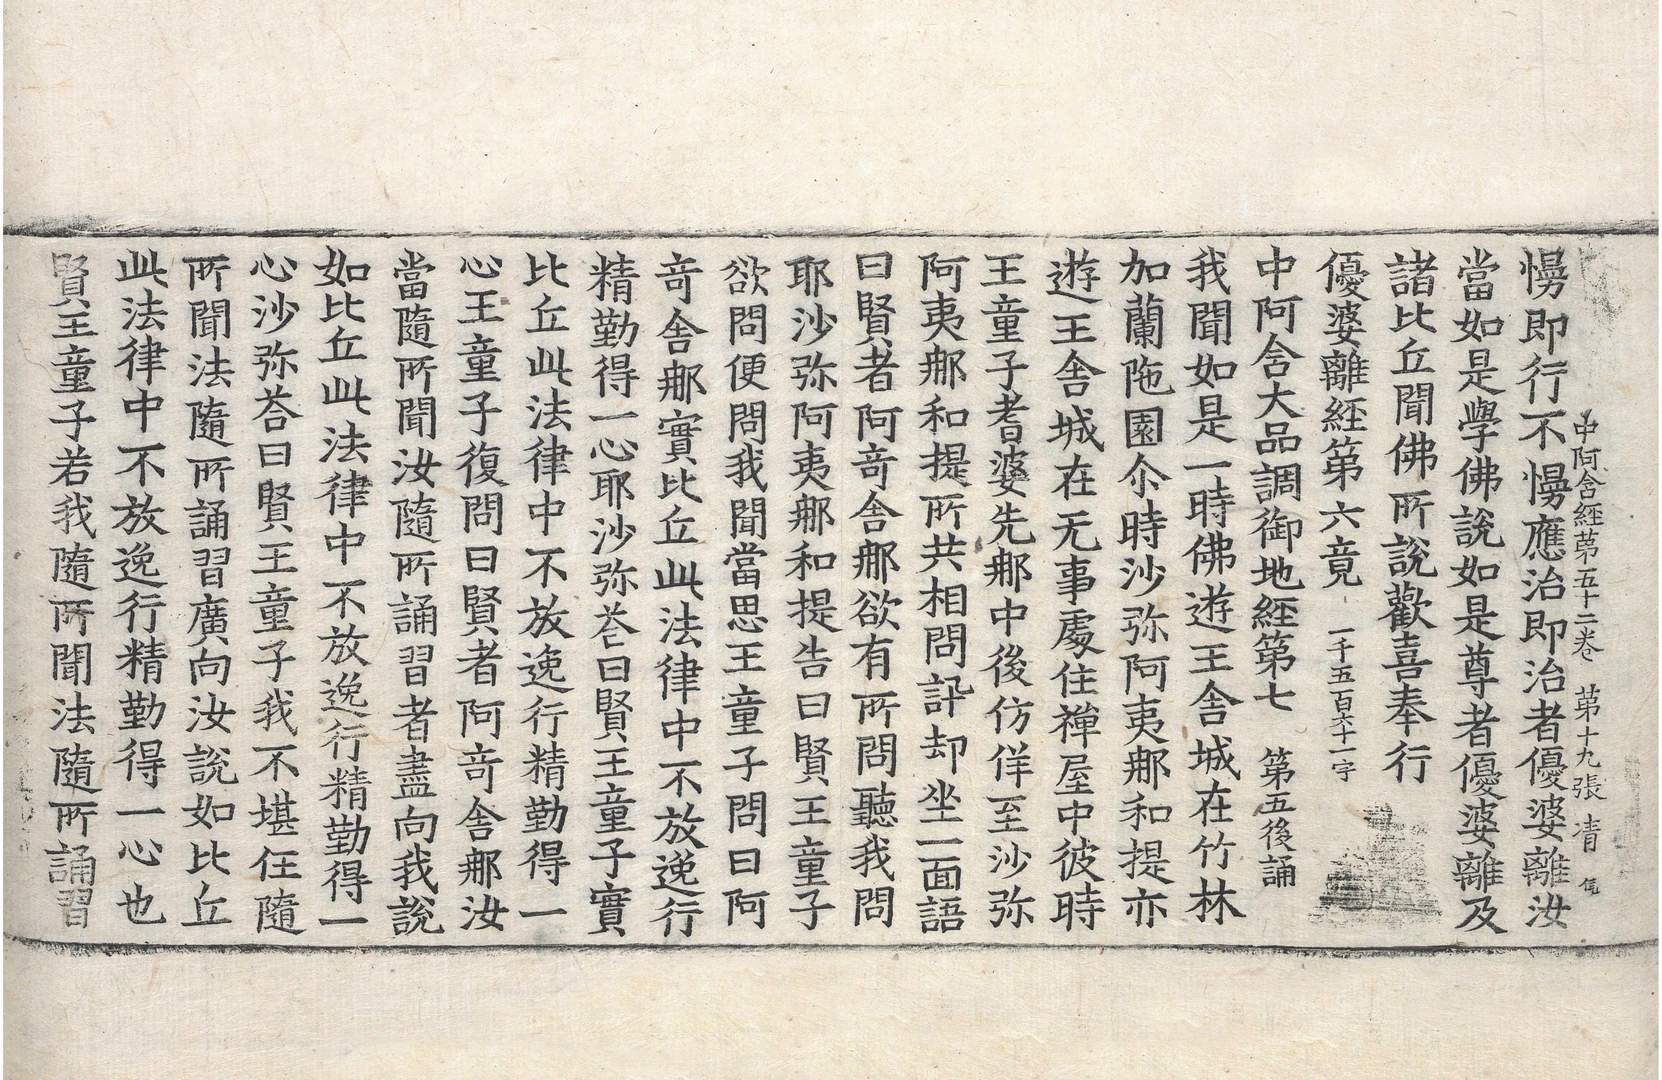 中阿含經第五十二卷　第十九張　清
慢即行不慢應治即治者優婆離汝
當如是學佛說如是尊者優婆離及
諸比丘聞佛所說歡喜奉行
優婆離經第六竟　一千五百六十一字
中阿含大品調御地經第七　第五後誦
我聞如是一時佛遊王舍城在竹林
加蘭陁園尒時沙弥阿夷那和提亦
遊王舍城在无事處住禪屋中彼時
王童子耆婆先那中後仿佯至沙弥
阿夷那和提所共相問訊却坐一面語
曰賢者阿竒舍那欲有所問聽我問
耶沙弥阿夷那和提告曰賢王童子
欲問便問我聞當思王童子問曰阿
竒舍那實比丘此法律中不放逸行
精勤得一心耶沙弥荅曰賢王童子實
比丘此法律中不放逸行精勤得一
心王童子復問曰賢者阿竒舍那汝
當隨所聞汝隨所誦習者盡向我說
如比丘此法律中不放逸行精勤得一
心沙弥荅曰賢王童子我不堪任隨
所聞法隨所誦習廣向汝說如比丘
此法律中不放逸行精勤得一心也
賢王童子若我隨所聞法隨所誦習